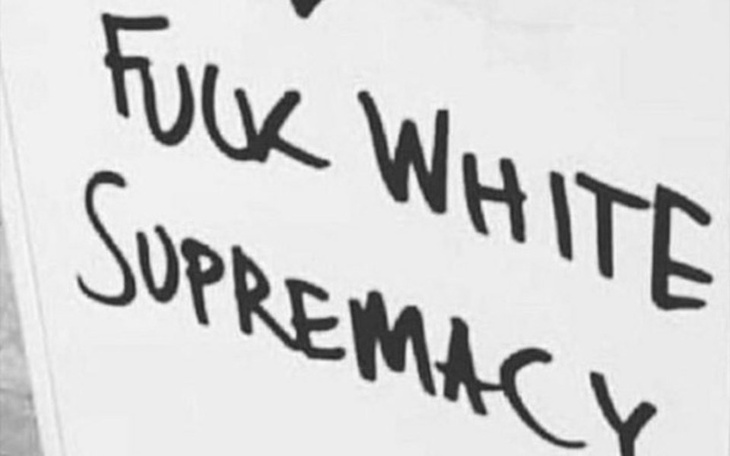 FUCK WHITE
SUPREMACY